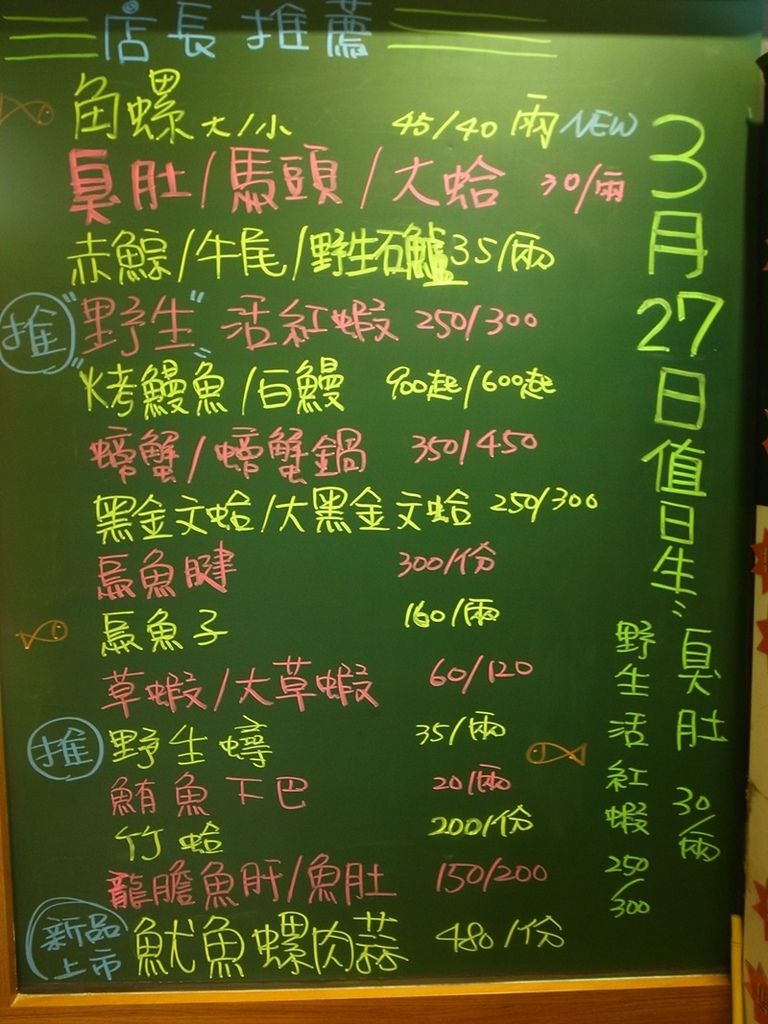 店長推薦
角螺大/小 45/40兩 NEW
臭肚/馬頭/大蛤 30/兩
赤鯮/牛尾/野生石鱸 35/兩
推 "野生" 活紅蝦 250/300
烤鰻魚/白鰻 900起/600起
螃蟹/螃蟹鍋 350/450
黑金文蛤/大黑金文蛤 250/300
烏魚腱 300/份
烏魚子 160/兩
草蝦/大草蝦 60/120
推 野生蟳 35/兩
鮪魚下巴 20/兩
竹蛤 200/份
龍膽魚肝/魚肚 150/200
新品上市 魷魚螺肉蒜 480/份
3月27日值日生:
臭肚 30/兩
野生活紅蝦 250/300